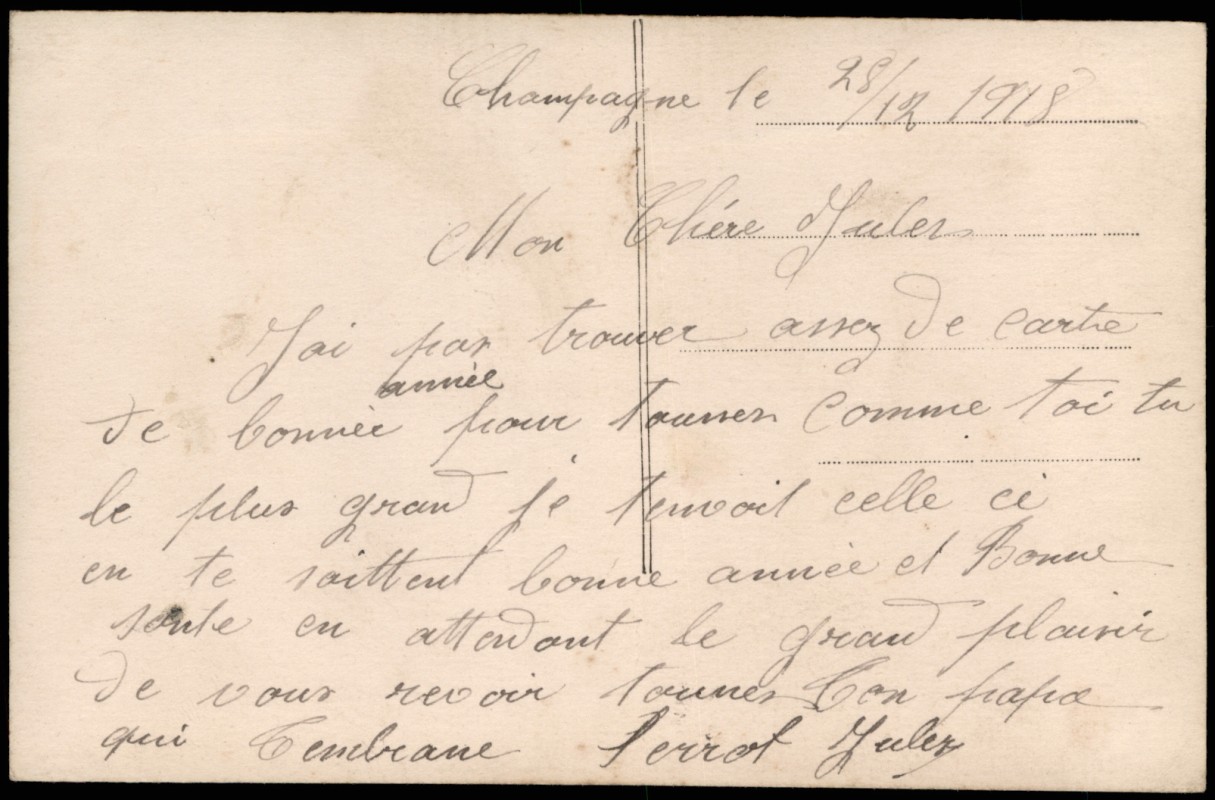 Champagne le 28/12 1918
Mon Chére Jules
Jai pas trouver assez de carte
année
de bonnée pour tousses comme toi tu
le plus grand je tenvoit celle ci
en te saittent bonne année et Bonne
sente en attendant le grand plaisir
de vous revoir tousses Ton papa
qui Tembrane Perrot Jules